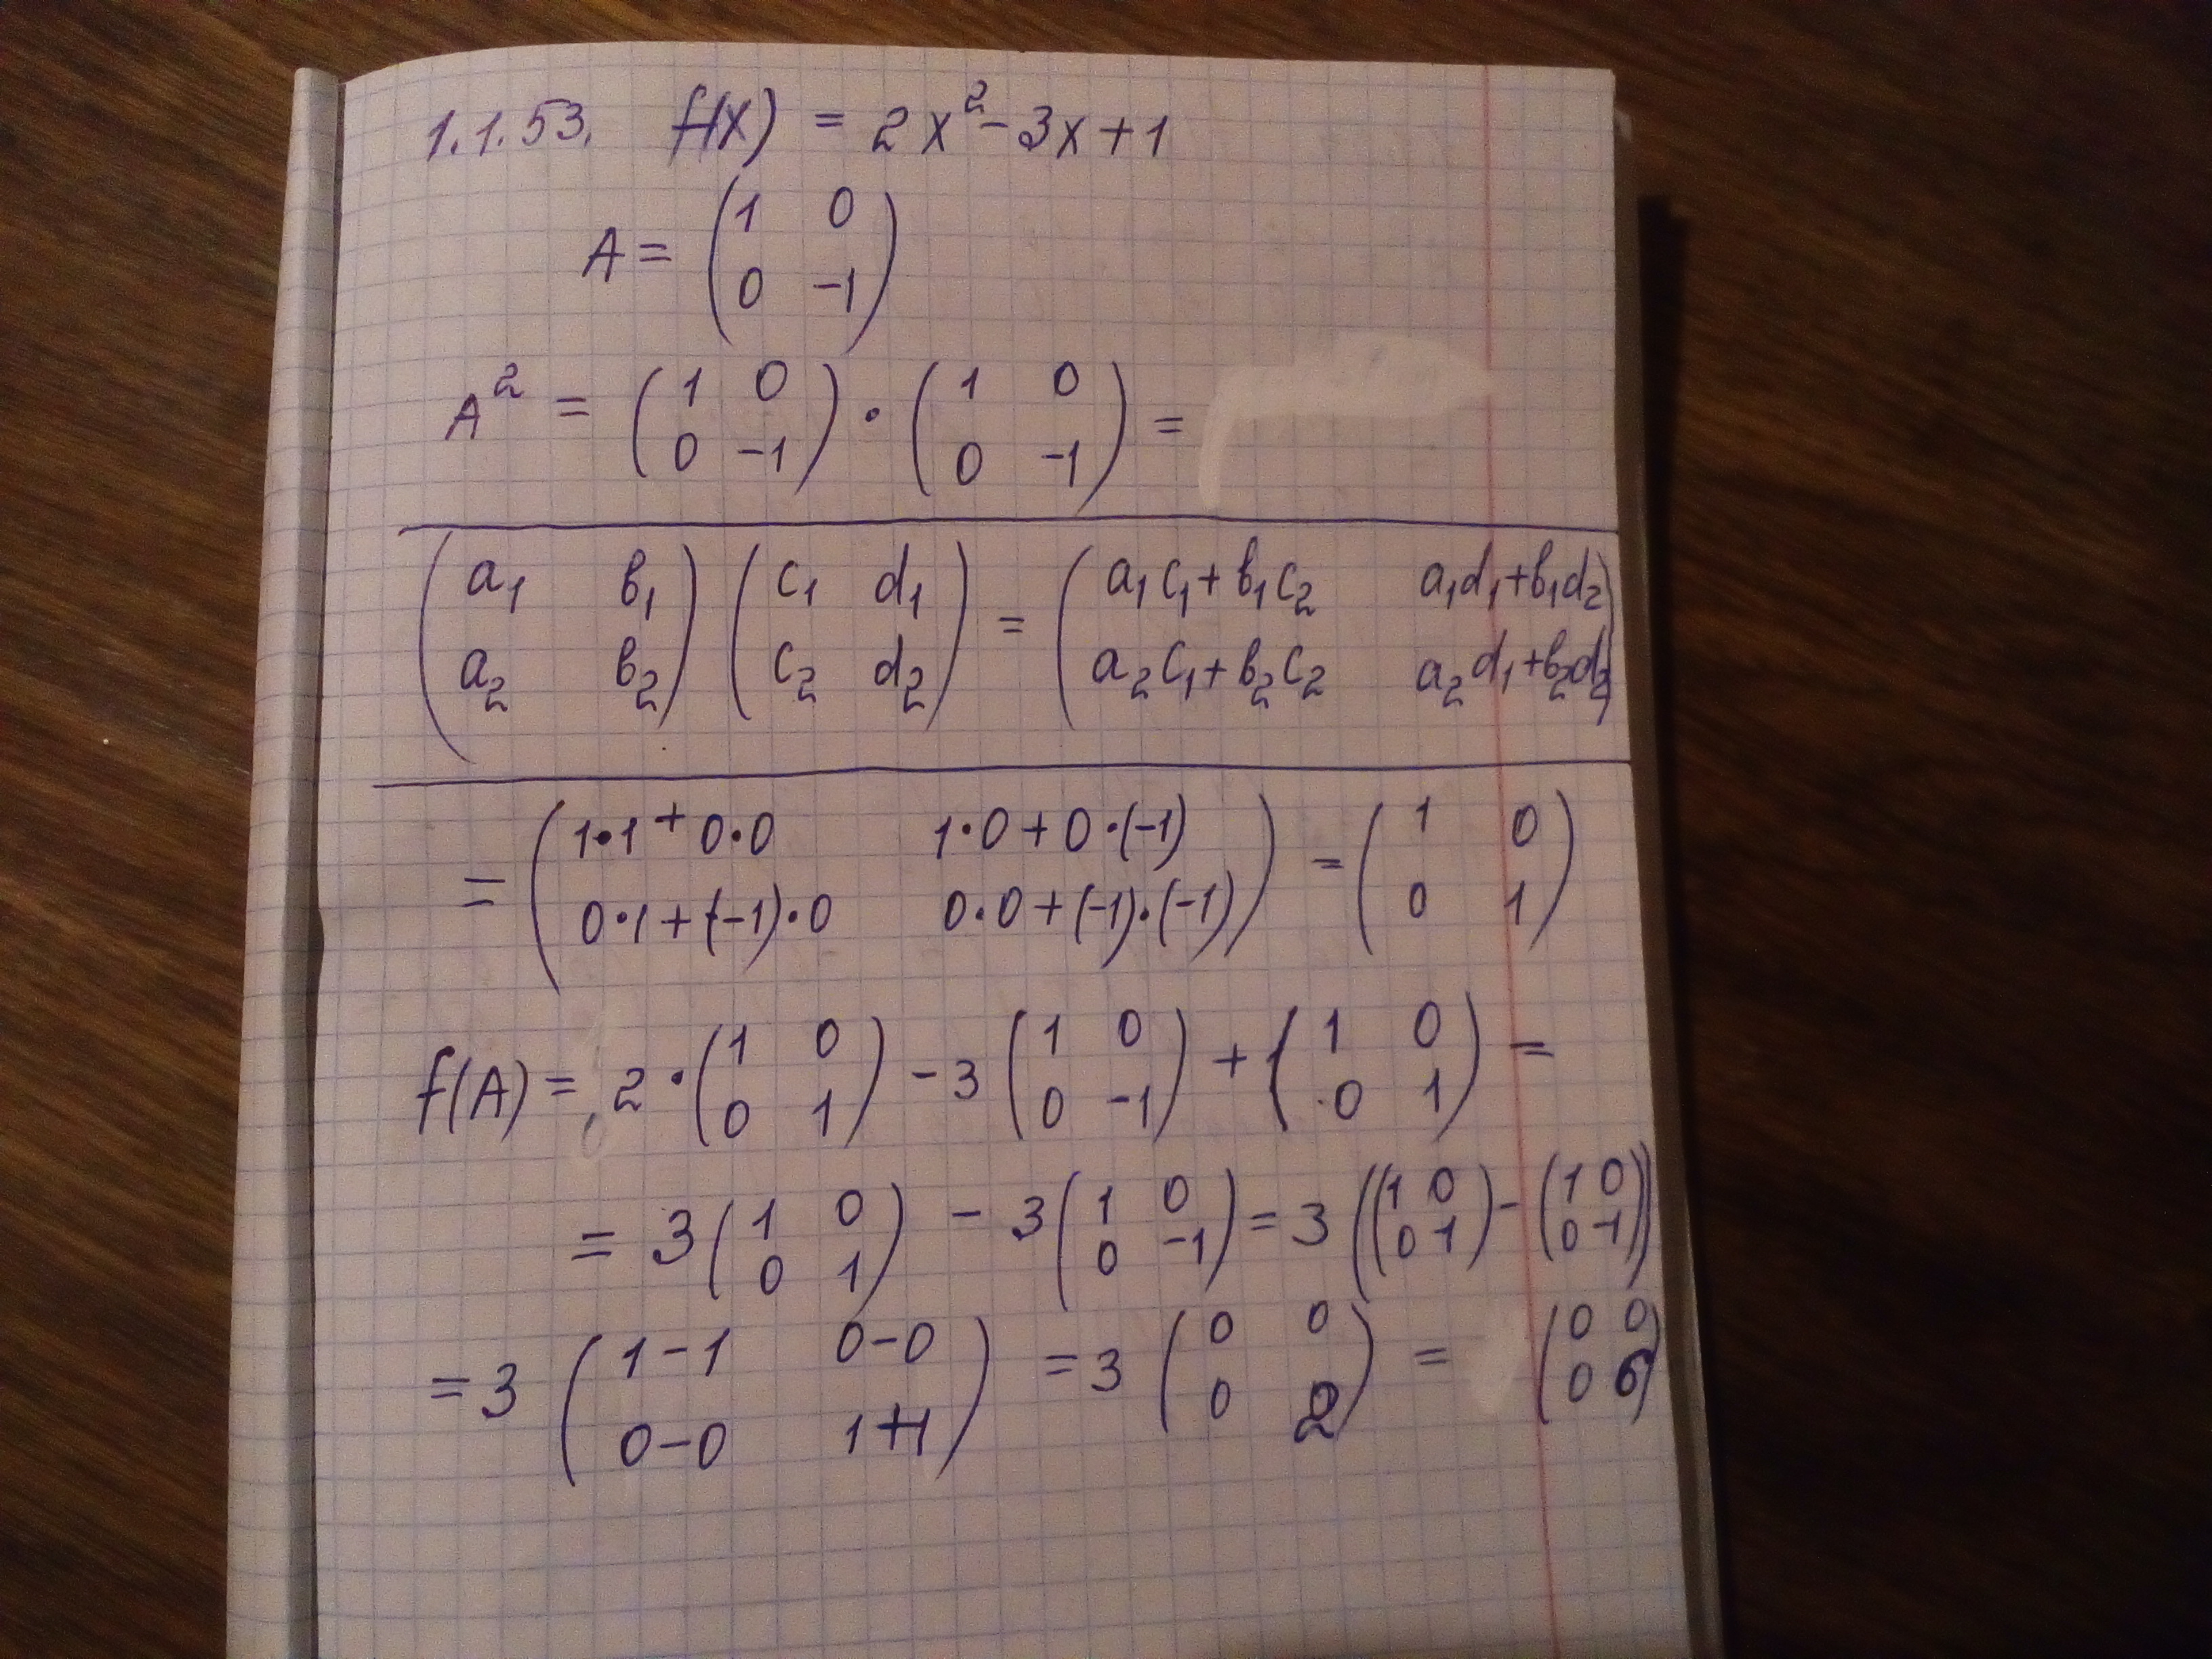 1.1.53. f(x) = 2x² - 3x + 1
A = ( 1 0
0 -1 )
A² = ( 1 0
0 -1 ) · ( 1 0
0 -1 ) =
( a₁ в₁
a₂ в₂ ) ( c₁ d₁
c₂ d₂ ) = ( a₁c₁ + в₁c₂ a₁d₁ + в₁d₂
a₂c₁ + в₂c₂ a₂d₁ + в₂d₂ )
= ( 1·1 + 0·0 1·0 + 0·(-1)
0·1 + (-1)·0 0·0 + (-1)·(-1) ) = ( 1 0
0 1 )
f(A) = 2 · ( 1 0
0 1 ) - 3 ( 1 0
0 -1 ) + 1 ( 1 0
0 1 ) =
= 3 ( 1 0
0 1 ) - 3 ( 1 0
0 -1 ) = 3 ( ( 1 0
0 1 ) - ( 1 0
0 -1 ) )
= 3 ( 1-1 0-0
0-0 1+1 ) = 3 ( 0 0
0 2 ) = ( 0 0
0 6 )